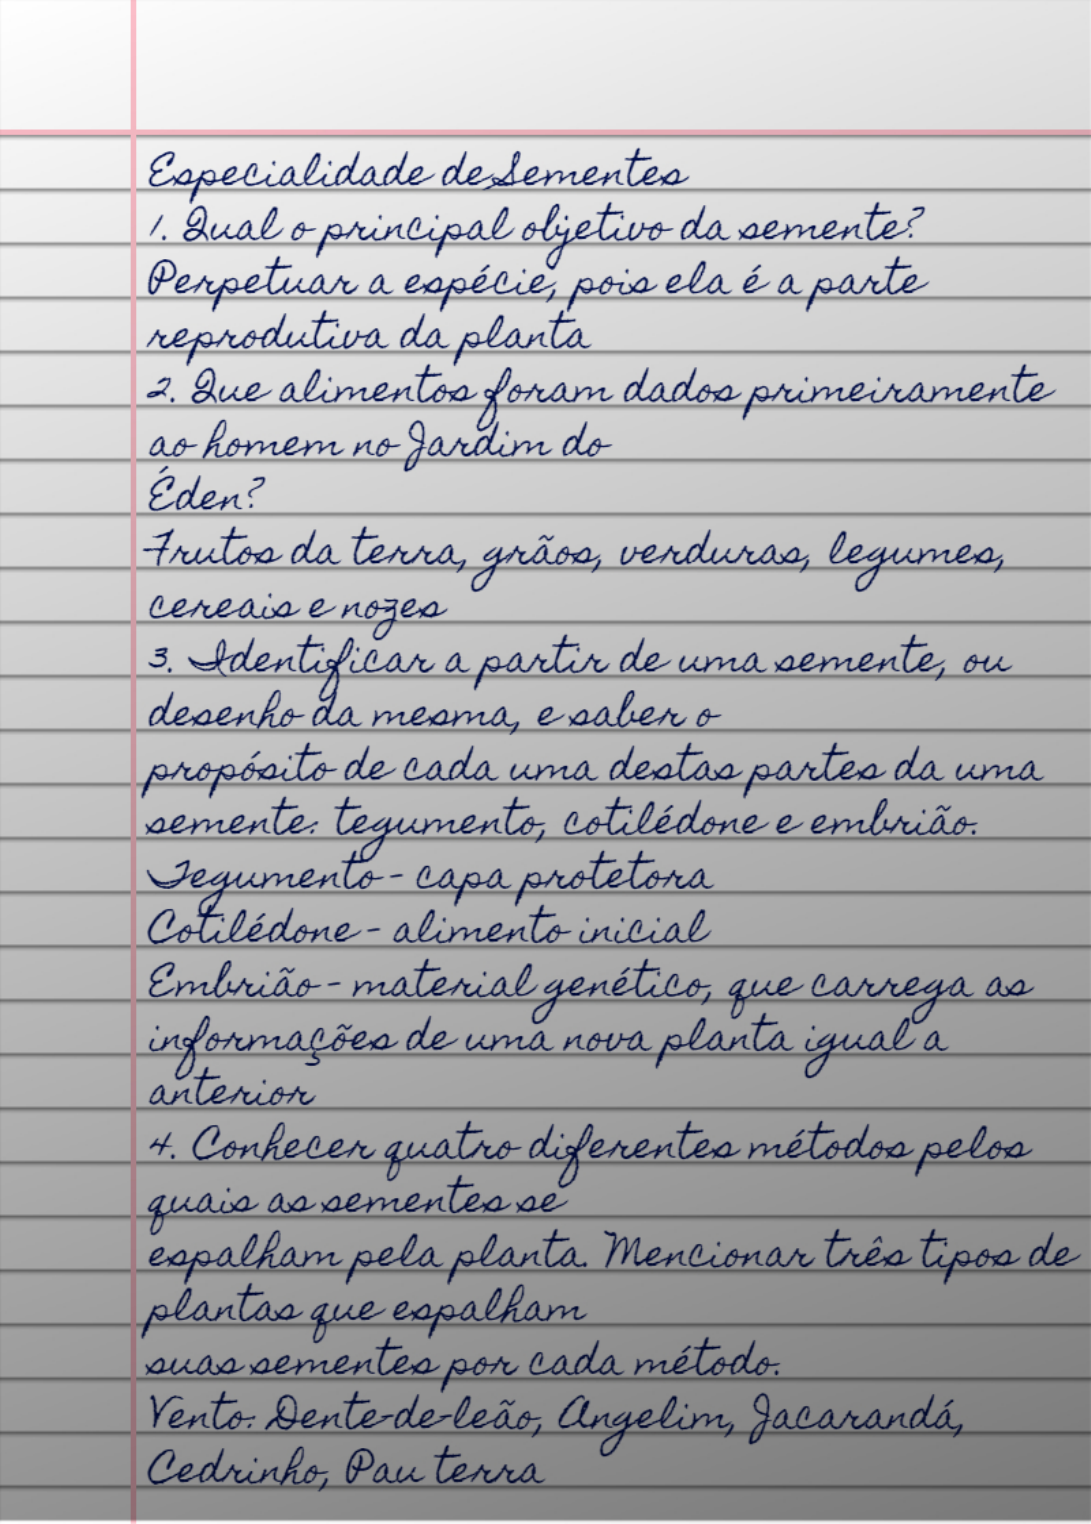 Especialidade de Sementes
1. Qual o principal objetivo da semente?
Perpetuar a espécie, pois ela é a parte
reprodutiva da planta
2. Que alimentos foram dados primeiramente
ao homem no Jardim do
Éden?
Frutos da terra, grãos, verduras, legumes,
cereais e nozes
3. Identificar a partir de uma semente, ou
desenho da mesma, e saber o
propósito de cada uma destas partes da uma
semente: tegumento, cotilédone e embrião.
Tegumento - capa protetora
Cotilédone - alimento inicial
Embrião - material genético, que carrega as
informações de uma nova planta igual a
anterior
4. Conhecer quatro diferentes métodos pelos
quais as sementes se
espalham pela planta. Mencionar três tipos de
plantas que espalham
suas sementes por cada método.
Vento: Dente-de-leão, Angelim, Jacarandá,
Cedrinho, Pau terra